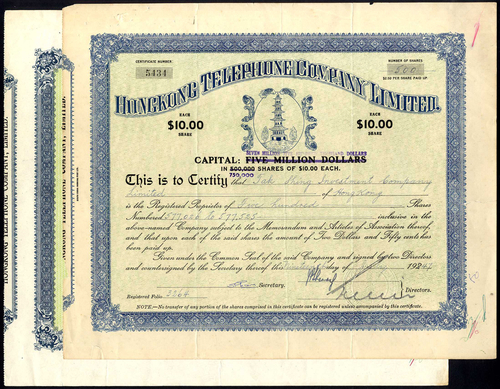 CERTIFICATE NUMBER
5434
NUMBER OF SHARES
500
$2.50 PER SHARE PAID UP.
HONGKONG TELEPHONE COMPANY LIMITED.
EACH
$10.00
SHARE
EACH
$10.00
SHARE
SEVEN MILLION DOLLARS
CAPITAL: FIVE MILLION DOLLARS
IN 500,000 SHARES OF $10.00 EACH.
750,000
This is to Certify that Tak Shing Investment Company
Limited of Hongkong
is the Registered Proprietor of Five hundred Shares
Numbered to inclusive in the
above-named Company subject to the Memorandum and Articles of Association thereof,
and that upon each of the said shares the amount of Two Dollars and Fifty cents has
been paid up.
Given under the Common Seal of the said Company and signed by two Directors
and countersigned by the Secretary thereof this day of 19
Secretary.
Directors.
Registered Folio
NOTE:—No transfer of any portion of the shares comprised in this certificate can be registered unless accompanied by this certificate.
HONGKONG TELEPHONE COMPANY, LIMITED.
HONGKONG TELEPHONE COMPANY, LIMITED.